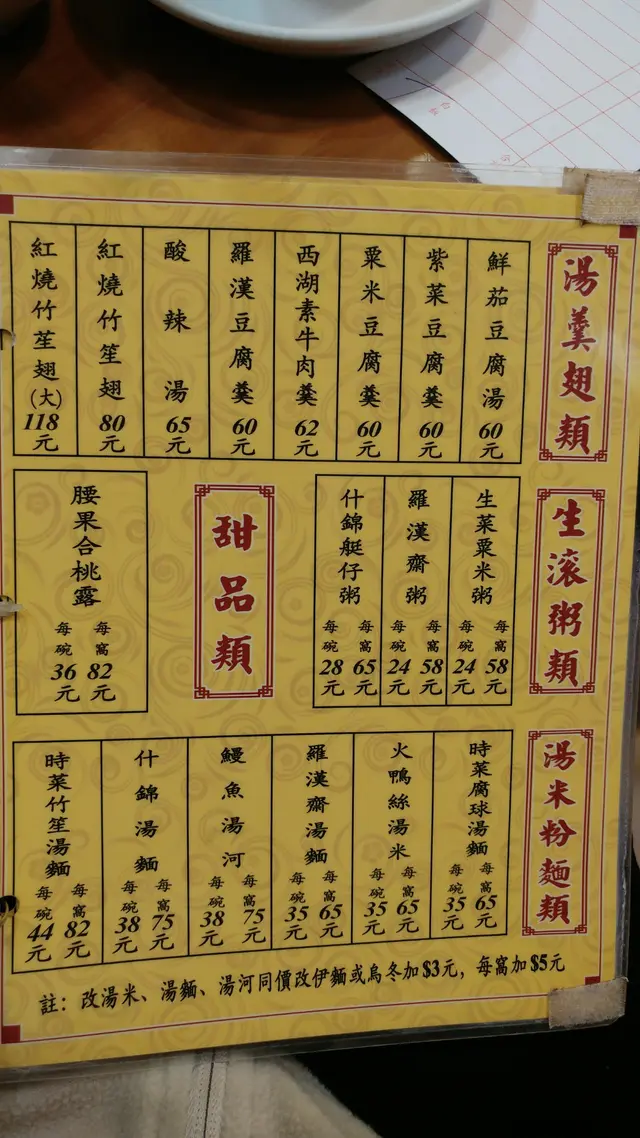 湯羹翅類
鮮茄豆腐湯 60元
紫菜豆腐羹 60元
粟米豆腐羹 60元
西湖素牛肉羹 62元
羅漢豆腐羹 60元
酸辣湯 65元
紅燒竹笙翅 80元
紅燒竹笙翅(大) 118元
生滚粥類
生菜粟米粥 每窩58元 每碗24元
羅漢齋粥 每窩58元 每碗24元
什錦艇仔粥 每窩65元 每碗28元
甜品類
腰果合桃露 每窩82元 每碗36元
湯米粉麵類
時菜腐球湯麵 每窩65元 每碗35元
火鴨絲湯米 每窩65元 每碗35元
羅漢齋湯麵 每窩65元 每碗35元
鰻魚湯河 每窩75元 每碗38元
什錦湯麵 每窩75元 每碗38元
時菜竹笙湯麵 每窩82元 每碗44元
註：改湯米、湯麵、湯河同價改伊麵或烏冬加$3元，每窩加$5元